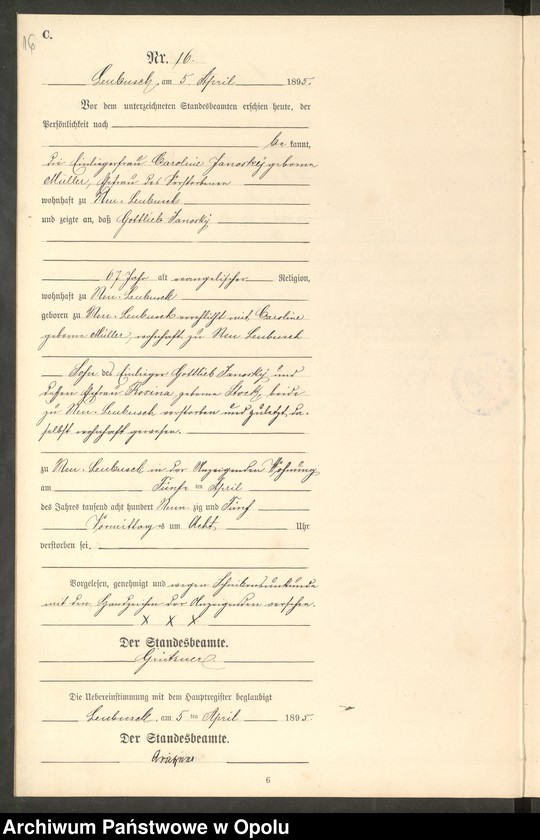 16
C.
Nr. 16.
Leubusch, am 5. April 1895.
Vor dem unterzeichneten Standesbeamten erschien heute, der
Persönlichkeit nach
be kannt,
die Einliegerfrau Caroline Janosky geborne
Müller, Ehefrau des Verstorbenen
wohnhaft zu Neu-Leubusch
und zeigte an, daß Gottlieb Janosky
67 Jahr alt evangelischer Religion,
wohnhaft zu Neu-Leubusch
geboren zu Neu-Leubusch verehlicht mit Caroline
geborne Müller, wohnhaft zu Neu Leubusch
Sohn des Einlieger Gottlieb Janosky und
dessen Ehefrau Rosina geborne Stock, beide
zu Neu-Leubusch verstorben und zuletzt da-
selbst wohnhaft gewesen.
zu Neu-Leubusch in der Anzeigenden Wohnung
am Fünften April
des Jahres tausend acht hundert Neun zig und Fünf
Vormittag s um Acht Uhr
verstorben sei.
Vorgelesen, genehmigt und wegen Schreibensunkunde
mit den Handzeichen der Anzeigenden versehen.
X X X
Der Standesbeamte.
Die Uebereinstimmung mit dem Hauptregister beglaubigt
Leubusch, am 5 ten April 1895.
Der Standesbeamte.
6
Archiwum Państwowe w Opolu